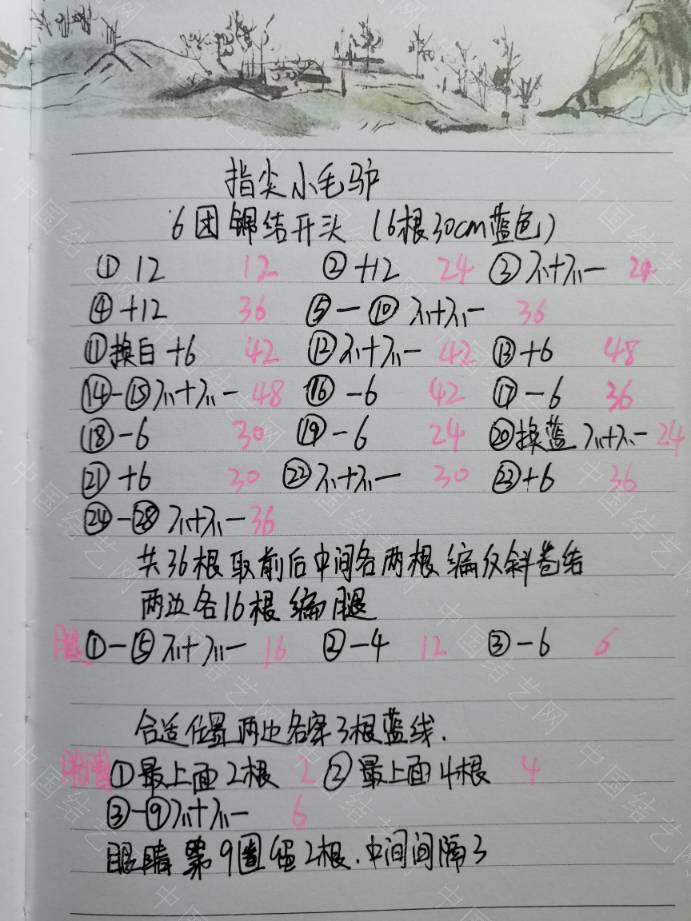 指尖小毛驴
6团锦结开头(6根30cm蓝色)
① 12 12 ② +12 24 ③ 不加不一 24
④ +12 36 ⑤一⑩ 不加不一 36
⑪换白+6 42 ⑫不加不一 42 ⑬+6 48
⑭-⑮不加不一 48 ⑯ -6 42 ⑰ -6 36
⑱-6 30 ⑲-6 24 ⑳换蓝 不加不一 24
㉑+6 30 ㉒不加不一 30 ㉓+6 36
㉔-㉘不加不一 36
共36根取前后中间各两根编反斜卷结
两边各16根编腿
腿①一⑤不加不一 16 ②-4 12 ③-6 6
合适位置两边各穿3根蓝线.
①最上面2根 2 ②最上面4根 4
③-⑨不加不一 6
眼睛第9圈留2根.中间间隔3
中国结艺网